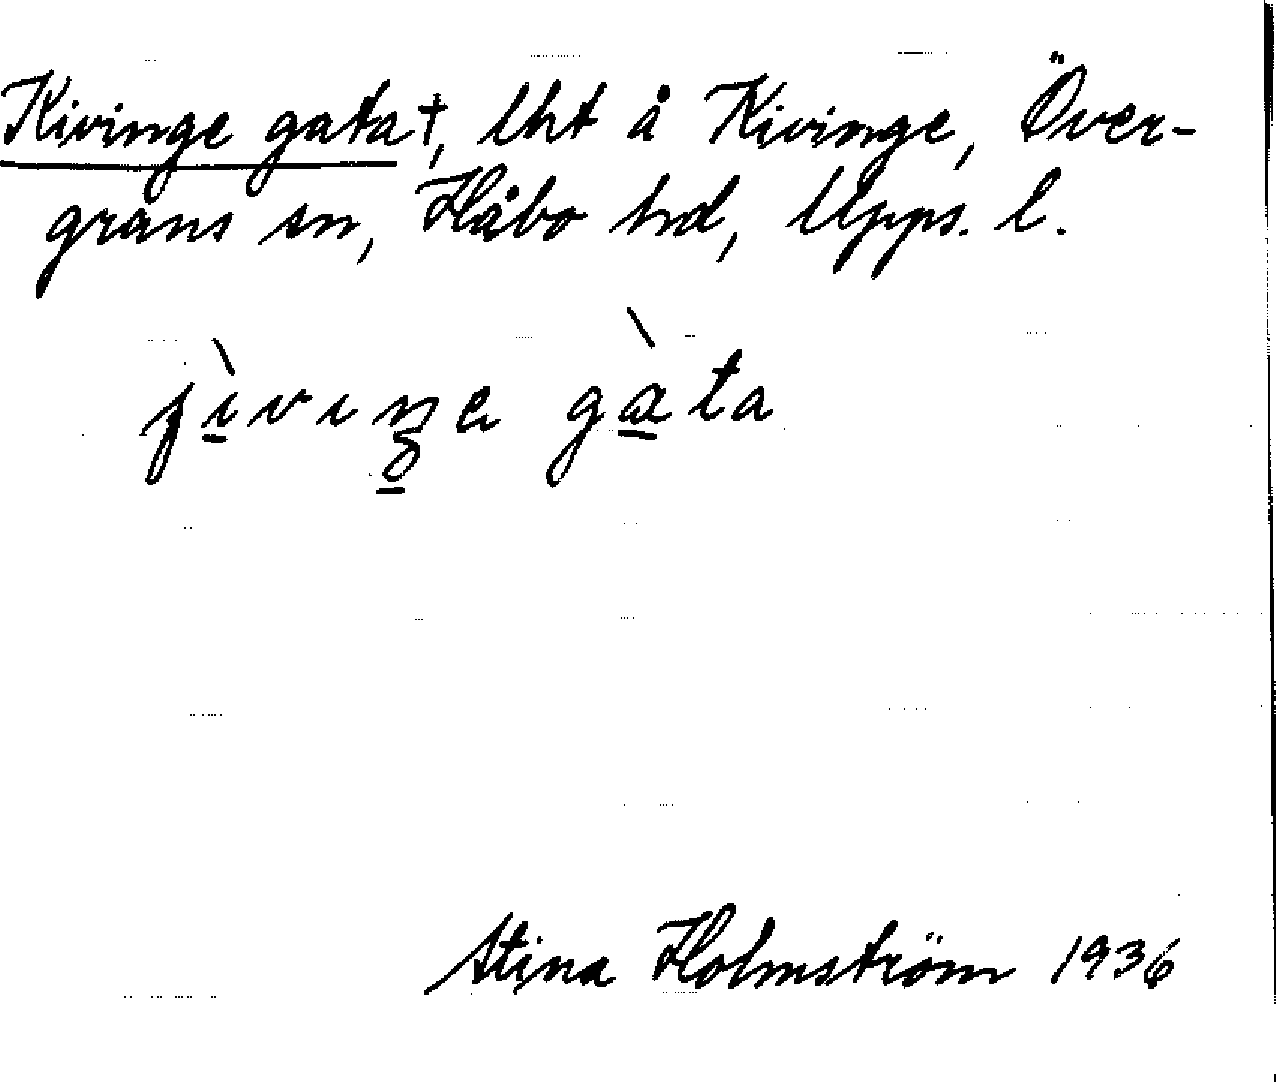 Kivinge gata†, lht å Kivinge, Över-
grans sn, Håbo hd, Upps. l.
gata
Stina Holmström 1936